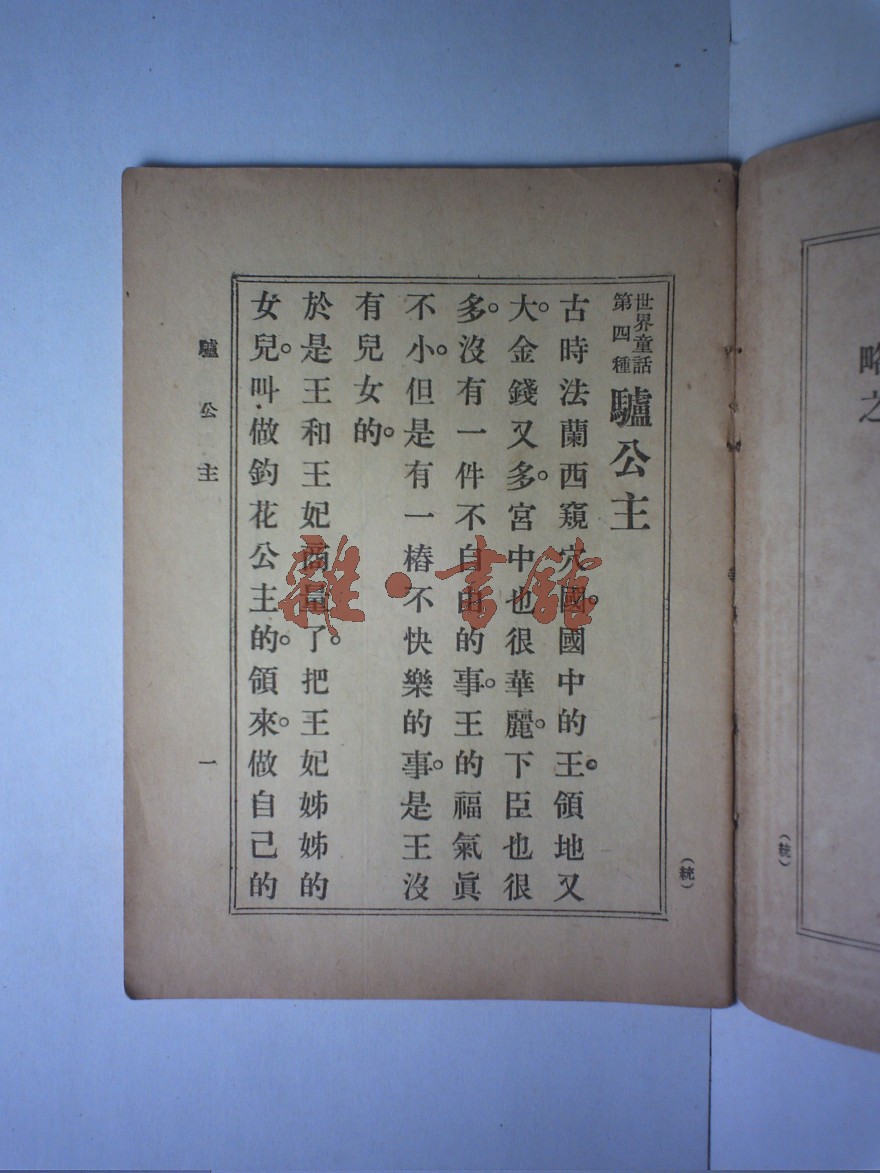 世界童話
第四種
驢公主
古時法蘭西窺穴國。國中的王。領地又
大。金錢又多。宮中也很華麗。下臣也很
多。沒有一件不自由的事。王的福氣眞
不小。但是有一樁不快樂的事。是王沒
有兒女的。
於是王和王妃商量了。把王妃姊姊的
女兒。叫做鈞花公主的。領來。做自己的
驢公主
一
(統)
略之
(統)
雜·書館